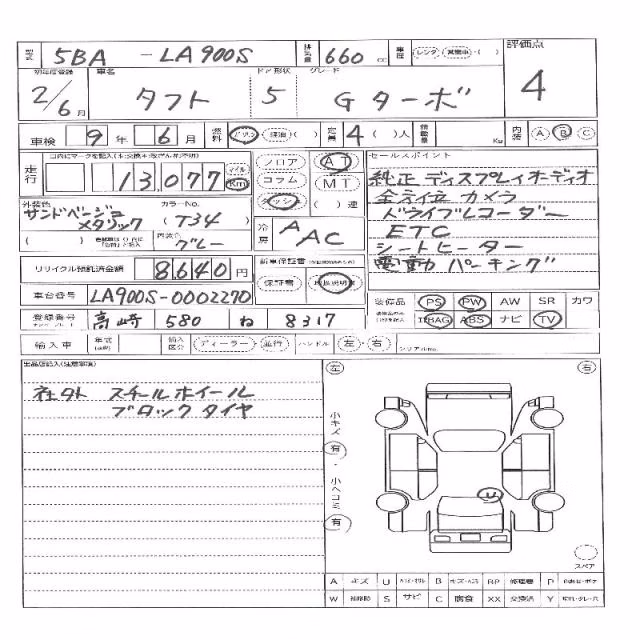 型式 5BA - LA900S 排気量 660 cc 車歴 レンタ・営業車・( ) 評価点
4
初年度登録 車名 ドア形状 グレード
2/6月 タフト 5 Gターボ
車検 9年 6月 燃料 ガソリン 軽油 ( ) 定員 4 ( )人 積載量 Kg 内装 A B C
走行 □内にマークを記入
13,077 マイル Km
フロア コラム ダッシュ
AT MT ( )連
セールスポイント
純正ディスプレイオーディオ
全方位カメラ
ドライブレコーダー
ETC
シートヒーター
電動パーキング
外装色 カラーNo.
サンドベージュメタリック (T34)
内装色 グレー
冷房 AAC
リサイクル預託済金額 8,640円
新車保証書
保証書 取扱説明書
車台番号 LA900S-0002270
装備品 PS PW AW SR カワ
エアBAG ABS ナビ TV
登録番号 高崎 580 ね 8317
輸入車 年式 輸入区分 ディーラー・並行 ハンドル 左・右 シリアルNo.
出品店記入(注意事項)
社外 スチールホイール
ブロックタイヤ
左 右
小キズ 有・小ヘコミ 有
U
スペア
A キズ U B キズ・ヘコミ RP 修理歴 P
W S サビ C 腐食 XX 交換済 Y